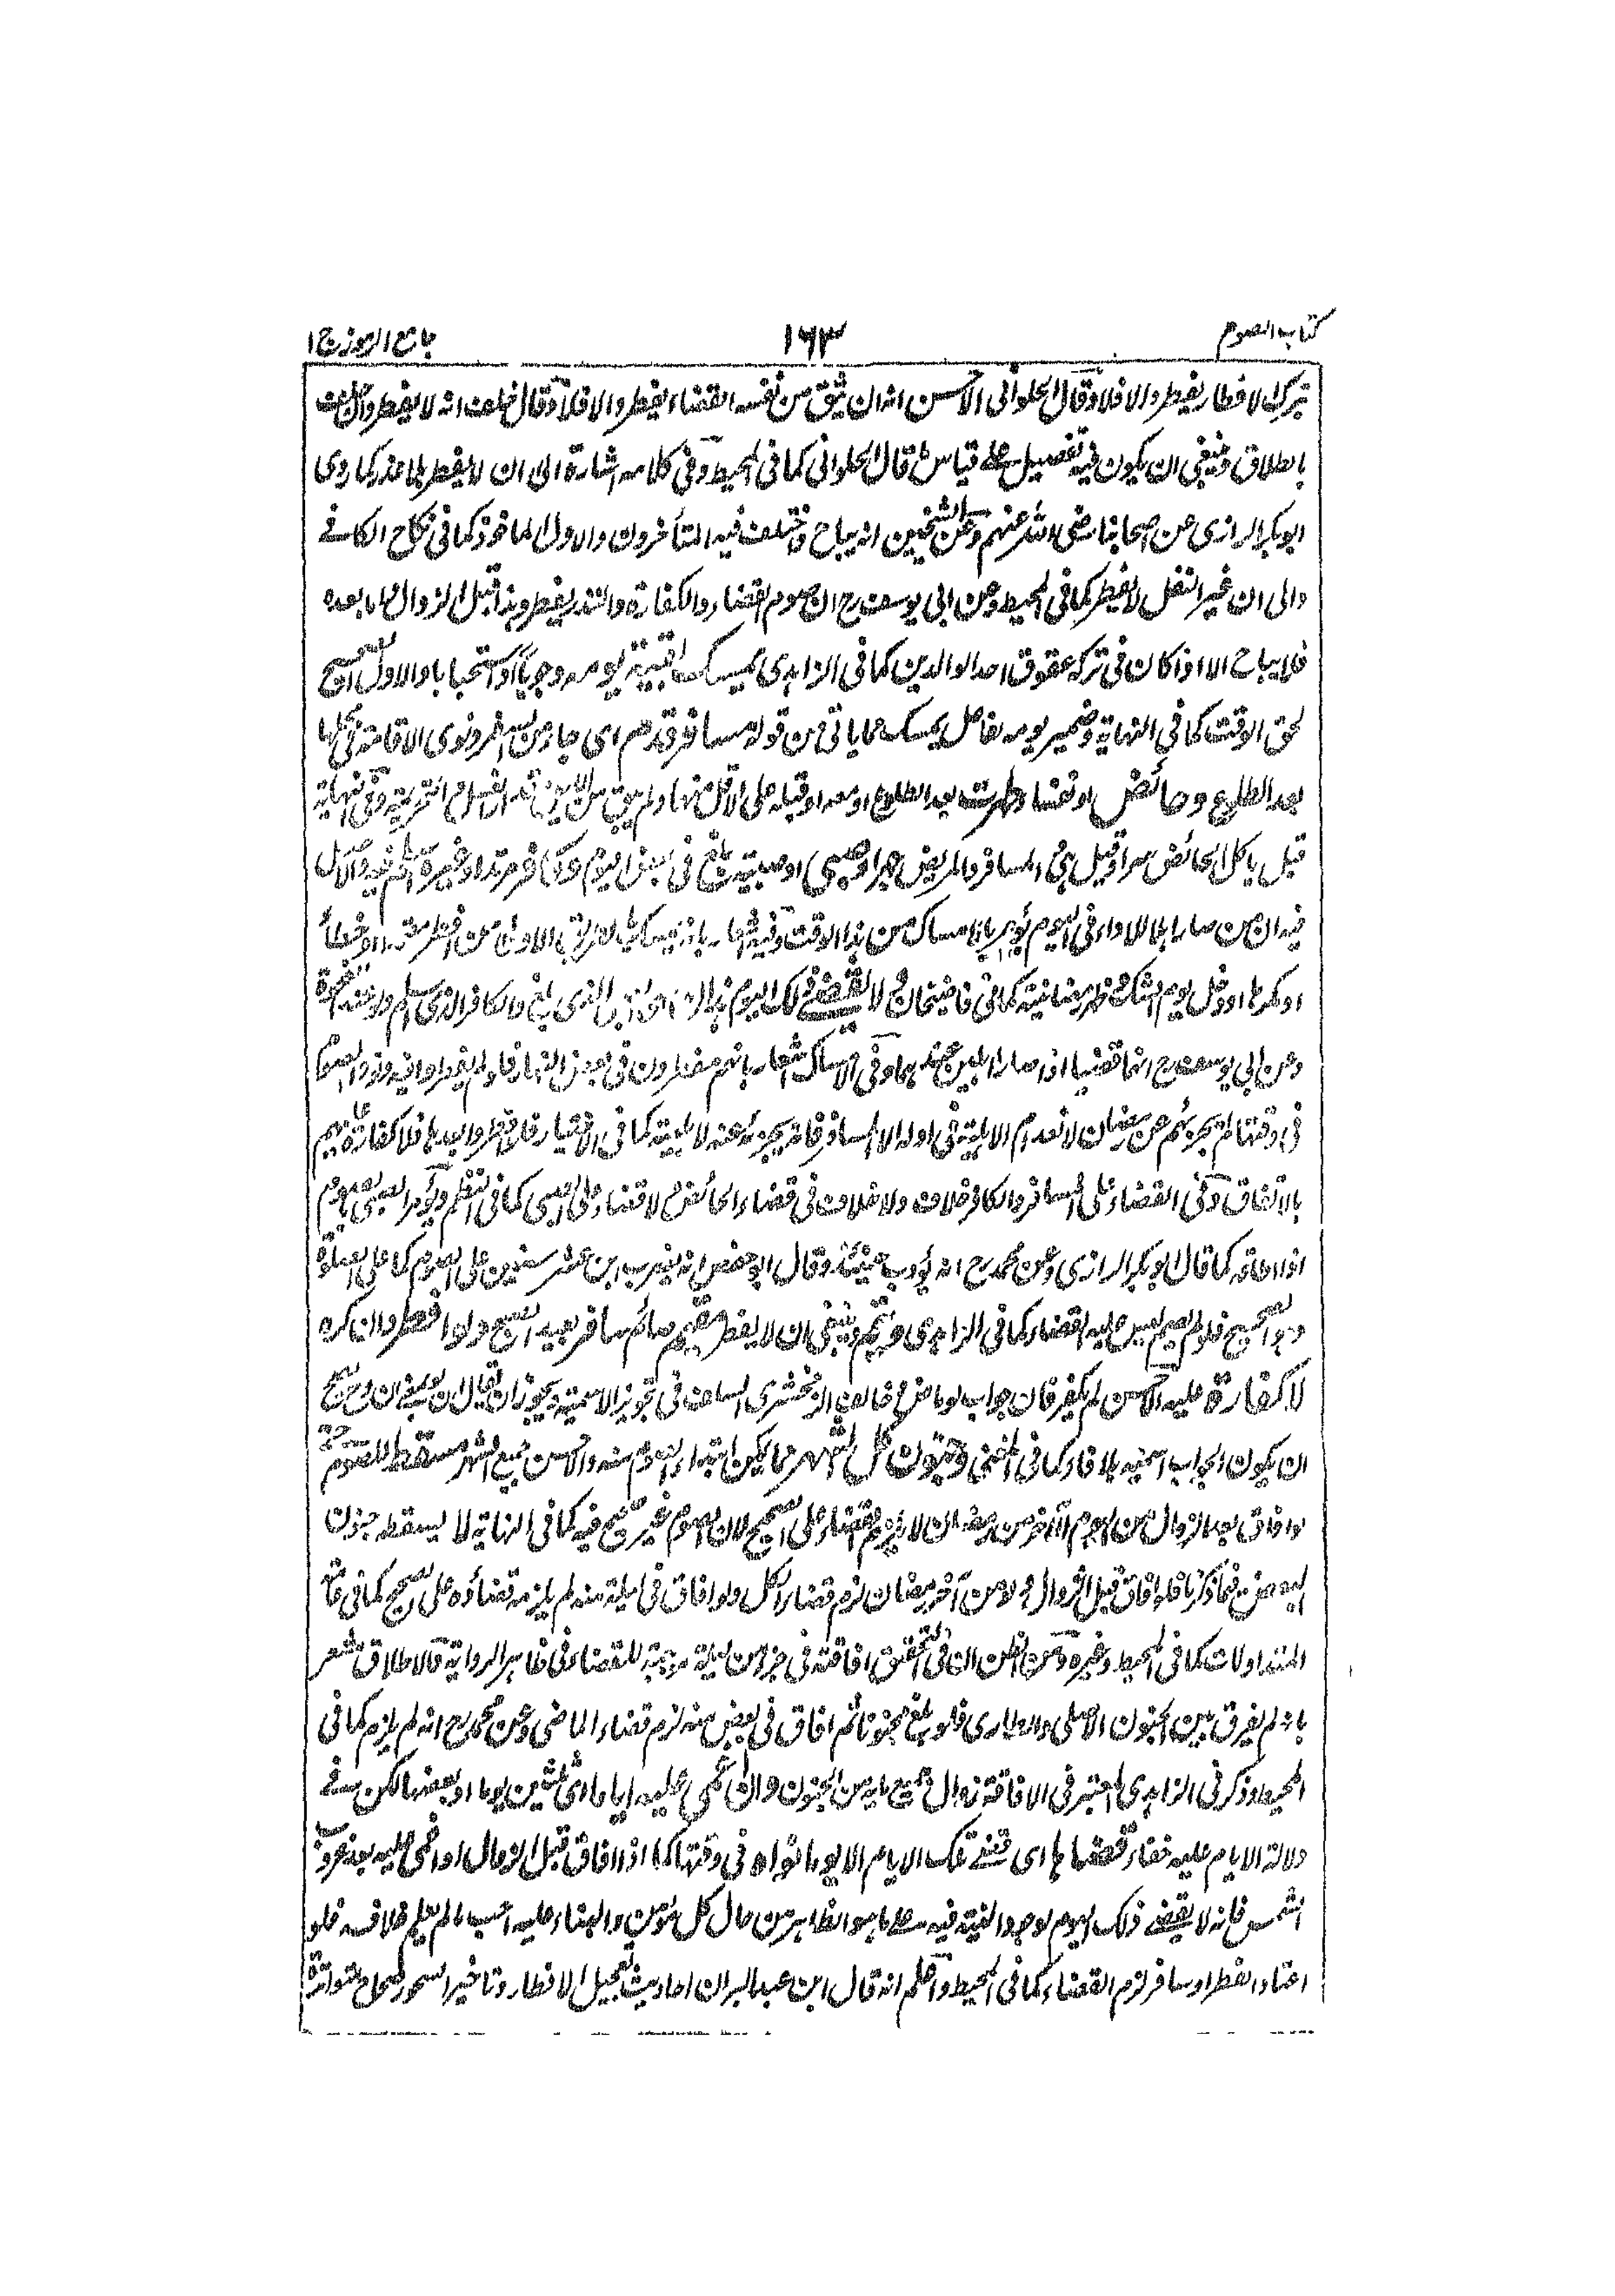 كتاب الصوم ١٦٣ جامع الرموز ج ١
بترك الافطار يفطر والا فلا وقال الحلوانى الاحسن انه ان يثق من نفسه القضاء يفطر والا فلا وقال خلف انه لا يفطر وان حلف
بالطلاق وينبغى ان يكون فيه تفصيل على قياس ما قال الحلوانى كما فى المحيط وفى كلامه اشارة الى ان لا يفطر بلا عذر كما روى
ابو بكر الرازى عن اصحابنا رضى الله عنهم وعن الشيخين انه يباح واختلف فيه المتأخرون والاول الماخوذ كما فى نكاح الكافى
والى ان غير النفل لا يفطر كما فى المحيط وعن ابى يوسف رح ان صوم القضاء والكفارة والنذر يفطر وهذا قبل الزوال اما بعده
فلا يباح الا اذا كان فى تركه عقوق احد الوالدين كما فى الزاهدى يمسك بقية يومه وجوبا او استحبابا والاول الصحيح
لحق الوقت كما فى النهاية وضمير يومه لفاعل يمسك مما ياتى من قوله مسافر قدم اى جاء من السفر ونوى الاقامة فى محلها
بعد الطلوع وحائض او نفساء طهرت بعد الطلوع او معه او قبله على الاقل منها ولم يبق من الليل قدر الغسل والتحريمة وفى النهاية
قيل ياكل الحائض سرا وقيل هى والمسافر والمريض جهرا وصبى او صبية بلغ فى بعض اليوم وكافر مرتد او غيره اسلم فيه والاصل
فيه ان من صار اهلا للاداء فى اليوم يؤمر بالامساك من هذا الوقت وفيه اشعار بانه يمسك بالطريق الاولى من افطر متعمدا او خطأ
او مكرها او اكل يوم الشك ثم ظهر رمضانيته كما فى قاضيخان ولا يقضى ذلك اليوم هذا الصبى الذى بلغ والكافر الذى اسلم ولو عند الضحوة
وعن ابى يوسف رح انهما قضيا اذا صارا اهلين عندهما وفى الامساك اشعار بانهم مفطرون فى بعض النهار فلو لم يفطروا فيه ونووا الصوم
فى وقتها لم يجزئهم عن رمضان لانعدام الاهلية فى اوله الا المسافر فانه يجزئه عنه لاهليته كما فى الاختيار فلو افطروا بعدها فلا كفارة عليهم
بالاتفاق وفى القضاء على المسافر والكافر خلاف ولا خلاف فى قضاء الحائض ولا قضاء على الصبى كما فى النظم ويؤمر الصبى بالصوم
اذا اطاقه كما قال ابو بكر الرازى وعن محمد رح انه يؤدب حينئذ وقال ابو حفص انه يضرب ابن عشر سنين على الصوم كما على الصلوة
وهو الصحيح فلو لم يصم ليس عليه القضاء كما فى الزاهدى ويتم وينبغى ان لا يفطر مقيم صائم سافر بعد الصبح ولو افطر وان كره
لا كفارة عليه والاحسن لم يكفر فان جواب لو ماض خالف الزمخشرى الساعة فى تجويز الاسمية ويجوز ان يقال ان لو بمعنى ان وصح
ان يكون الجواب اسمية بلا فاء كما فى المغنى وجنون كل الشهر مما يمكن ابتداء الصوم منه والاحسن جميع الشهر مسقط للصوم
لو افاق بعد الزوال من اليوم الآخر من رمضان لا يلزم القضاء على الصحيح لان الصوم غير صحيح فيه كما فى النهاية لا يسقطه جنون
البعض فما ذكرنا فلو افاق قبل الزوال ولو من آخر رمضان لزم قضاء الكل ولو افاق فى ليلة منه لم يلزمه قضاؤه على الصحيح كما فى عامة
المتداولات كما فى المحيط وغيره ومن الظن ان فى التحقيق افاقته فى جزء من ليلة موجبة للقضاء فى ظاهر الرواية فالاطلاق مشعر
بانه لم يفرق بين الجنون الاصلى والعارى فلو بلغ مجنونا ثم افاق فى بعض منه لزم قضاء الماضى وعن محمد رح انه لم يلزم كما فى
المحيط وذكر فى الزاهدى المعتبر فى الافاقة زوال جميع ما به من الجنون وان اغمى عليه اياما اى ثلثين يوما او بعضها لكن فى
دلالة الايام عليه خفاء قضاها اى قضى تلك الايام الا يوما نواه فى وقتها كما اذا افاق قبل الزوال او اغمى عليه بعد غروب
الشمس فانه لا يقضى ذلك اليوم لوجود النية فيه على ما هو الظاهر من حال كل مؤمن والبناء عليه احب ما لم يعلم خلافه فلو
اعتاد الفطر او سافر لزم القضاء كما فى المحيط واعلم انه قال ابن عبد البر ان احاديث تعجيل الافطار وتاخير السحور صحاح متواترة